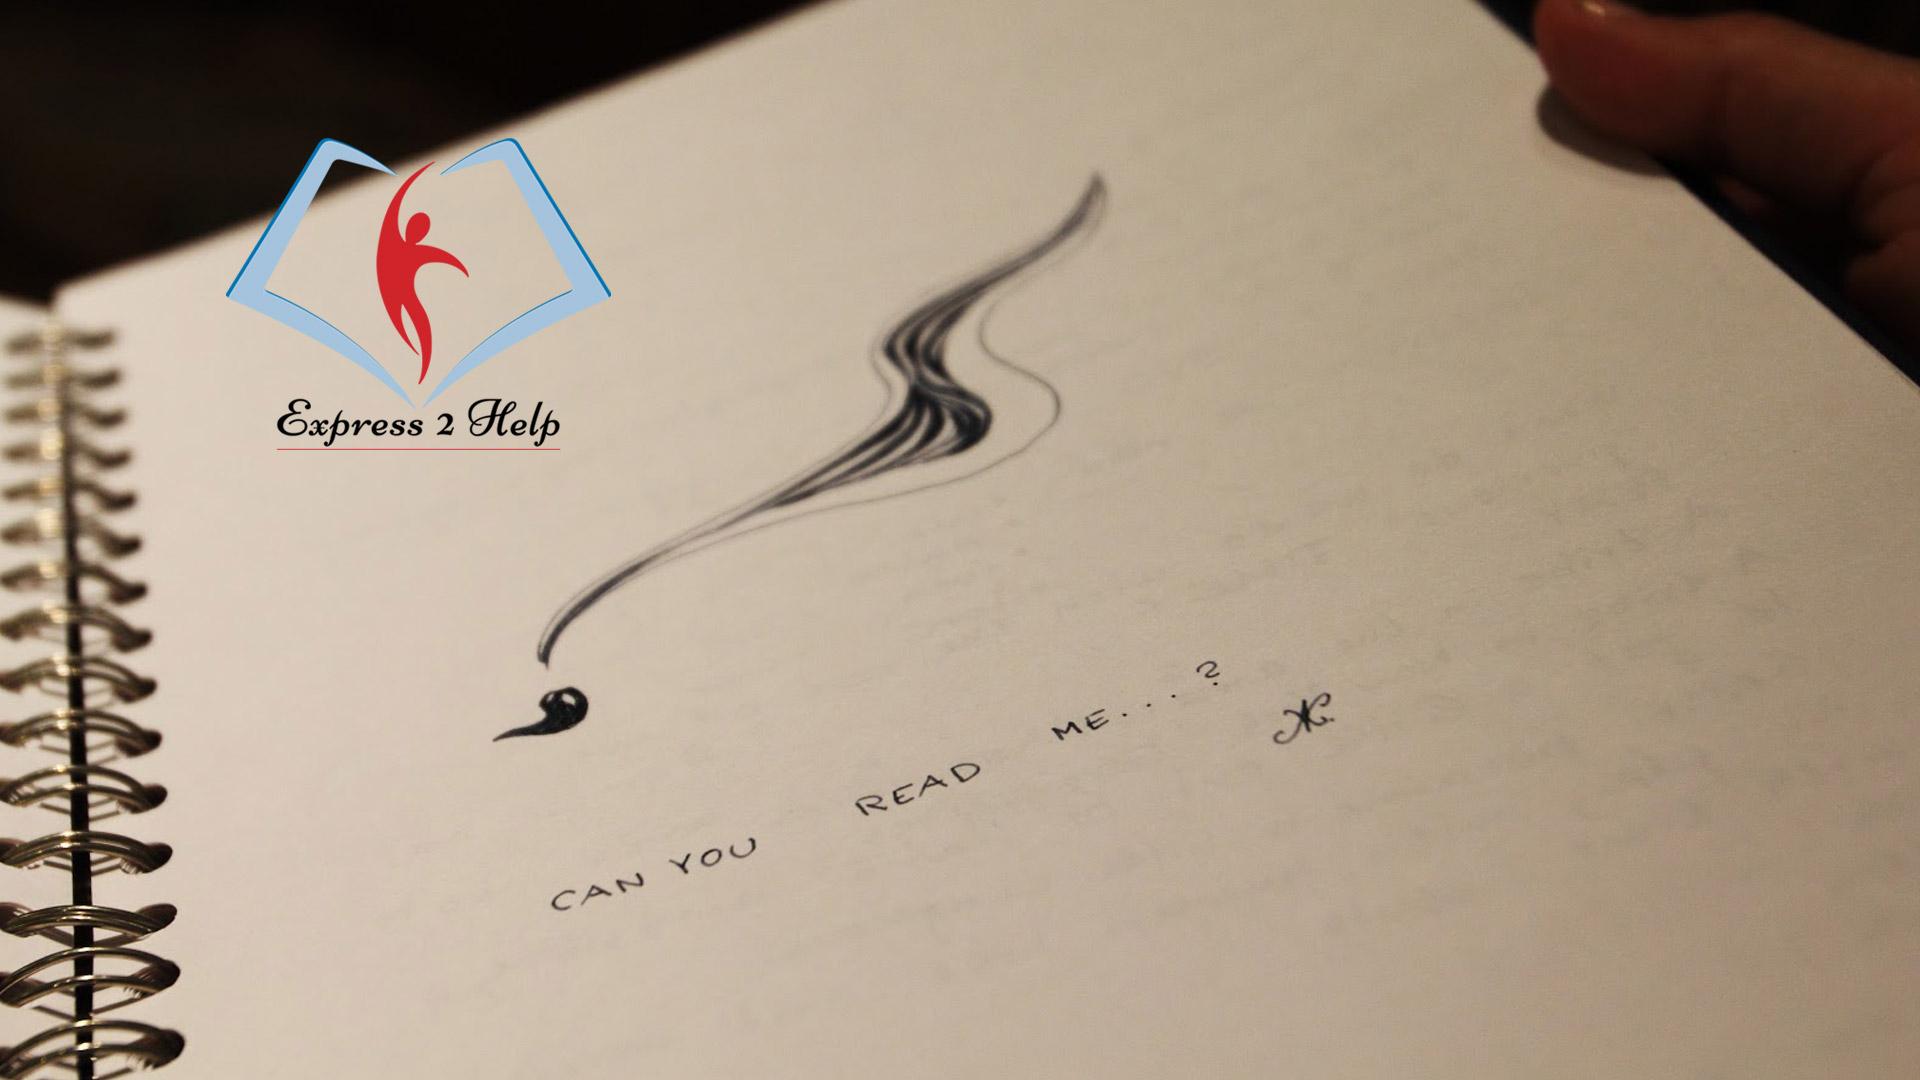 Express 2 Help
CAN YOU READ ME...?